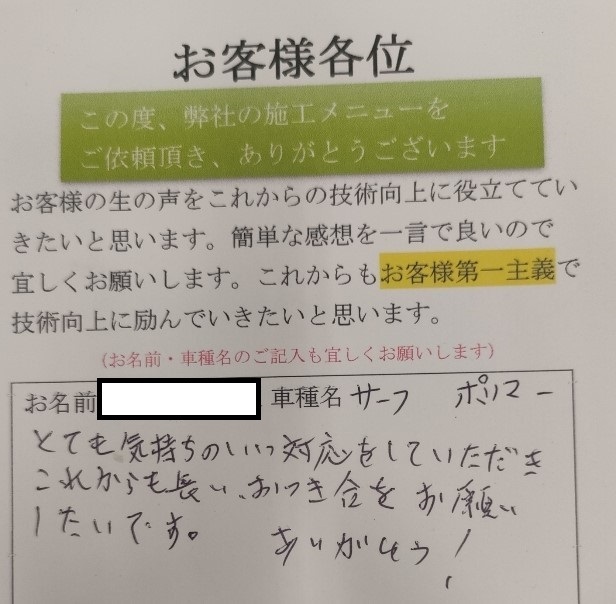 お客様各位
この度、弊社の施工メニューを
ご依頼頂き、ありがとうございます
お客様の生の声をこれからの技術向上に役立ててい
きたいと思います。簡単な感想を一言で良いので
宜しくお願いします。これからもお客様第一主義で
技術向上に励んでいきたいと思います。
(お名前・車種名のご記入も宜しくお願いします)
お名前 車種名 サーフ ポリマー
とても気持ちのいい対応をしていただき
これからも長い、おつき合をお願い
したいです。 ありがとう!